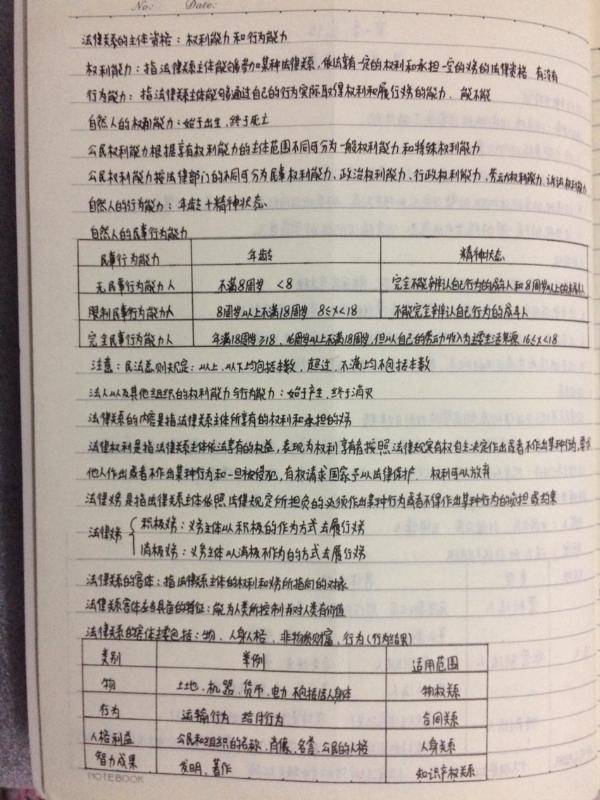 No: Date:
法律关系的主体资格：权利能力和行为能力
权利能力：指法律关系主体能够参加某种法律关系，依法享有一定的权利和承担一定的义务的法律资格 有没有
行为能力：指法律关系主体能够通过自己的行为实际取得权利和履行义务的能力. 能不能
自然人的权利能力：始于出生，终于死亡
公民权利能力根据享有权利能力的主体范围不同可分为一般权利能力和特殊权利能力
公民权利能力按法律部门的不同可分为民事权利能力、政治权利能力、行政权利能力、劳动权利能力、诉讼权利能力
自然人的行为能力：年龄+精神状态
自然人的民事行为能力
民事行为能力 年龄 精神状态
无民事行为能力人 不满8周岁 <8 完全不能辨认自己行为的成年人和8周岁以上的未成年人
限制民事行为能力人 8周岁以上不满18周岁 8≤x<18 不能完全辨认自己行为的成年人
完全民事行为能力人 年满18周岁 ≥18，16周岁以上不满18周岁，但以自己的劳动收入为主要生活来源 16≤x<18
注意：民法总则规定：以上，以下均包括本数，超过，不满均不包括本数
法人以及其他组织的权利能力与行为能力：始于产生，终于消灭
法律关系的内容是指法律关系主体所享有的权利和承担的义务
法律权利是指法律关系主体依法享有的权益，表现为权利享有者按照法律规定有权自主决定作出或者不作出某种行为，要求
他人作出或者不作出某种行为和一旦被侵犯，有权请求国家予以法律保护. 权利可以放弃
法律义务是指法律关系主体依照法律规定所担负的必须作出某种行为或者不得作出某种行为的负担或约束
法律义务 { 积极义务：义务主体以积极的作为方式去履行义务
消极义务：义务主体以消极不作为的方式去履行义务
法律关系的客体：指法律关系主体的权利和义务所指向的对象
法律关系客体应当具备的特征：能为人类所控制并对人类有价值
法律关系的客体主要包括：物、人身人格，非物质财富，行为(行为结果)
类别 举例 适用范围
物 土地、机器、货币、电力 不包括活人身体 物权关系
行为 运输行为 给付行为 合同关系
人格利益 公民和组织的名称、肖像、名誉、公民的人格 人身关系
智力成果 发明、著作 知识产权关系
NOTEBOOK